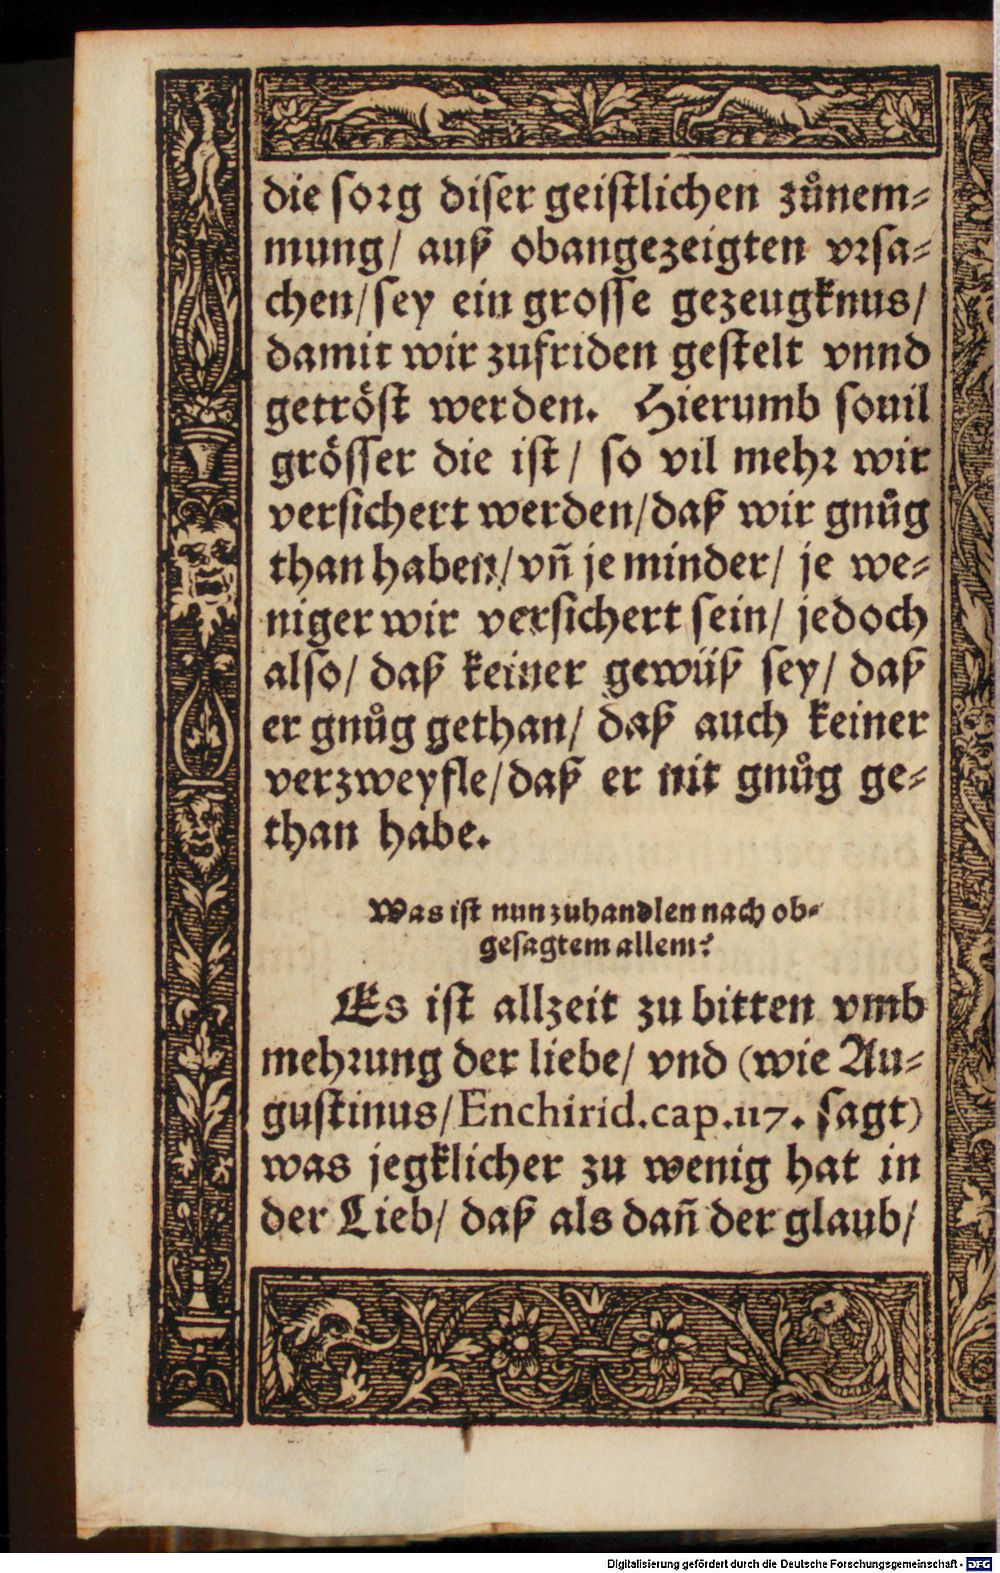 die sorg diser geistlichen zůnem-
mung/ auß obangezeigten vrsa-
chen/ sey ein grosse gezeugknus/
damit wir zufriden gestelt vnnd
getröst werden. Hierumb souil
grösser die ist/ so vil mehr wir
versichert werden/ daß wir gnůg
than haben/ vñ je minder/ je we-
niger wir versichert sein/ jedoch
also/ daß keiner gewüß sey/ daß
er gnůg gethan/ daß auch keiner
verzweyfle/ daß er nit gnůg ge-
than habe.
Was ist nun zuhandlen nach ob-
gesagtem allem?
Es ist allzeit zu bitten vmb
mehrung der liebe/ vnd (wie Au-
gustinus/ Enchirid. cap. 117. sagt)
was jegklicher zu wenig hat in
der Lieb/ daß als dañ der glaub/
Digitalisierung gefördert durch die Deutsche Forschungsgemeinschaft - DFG